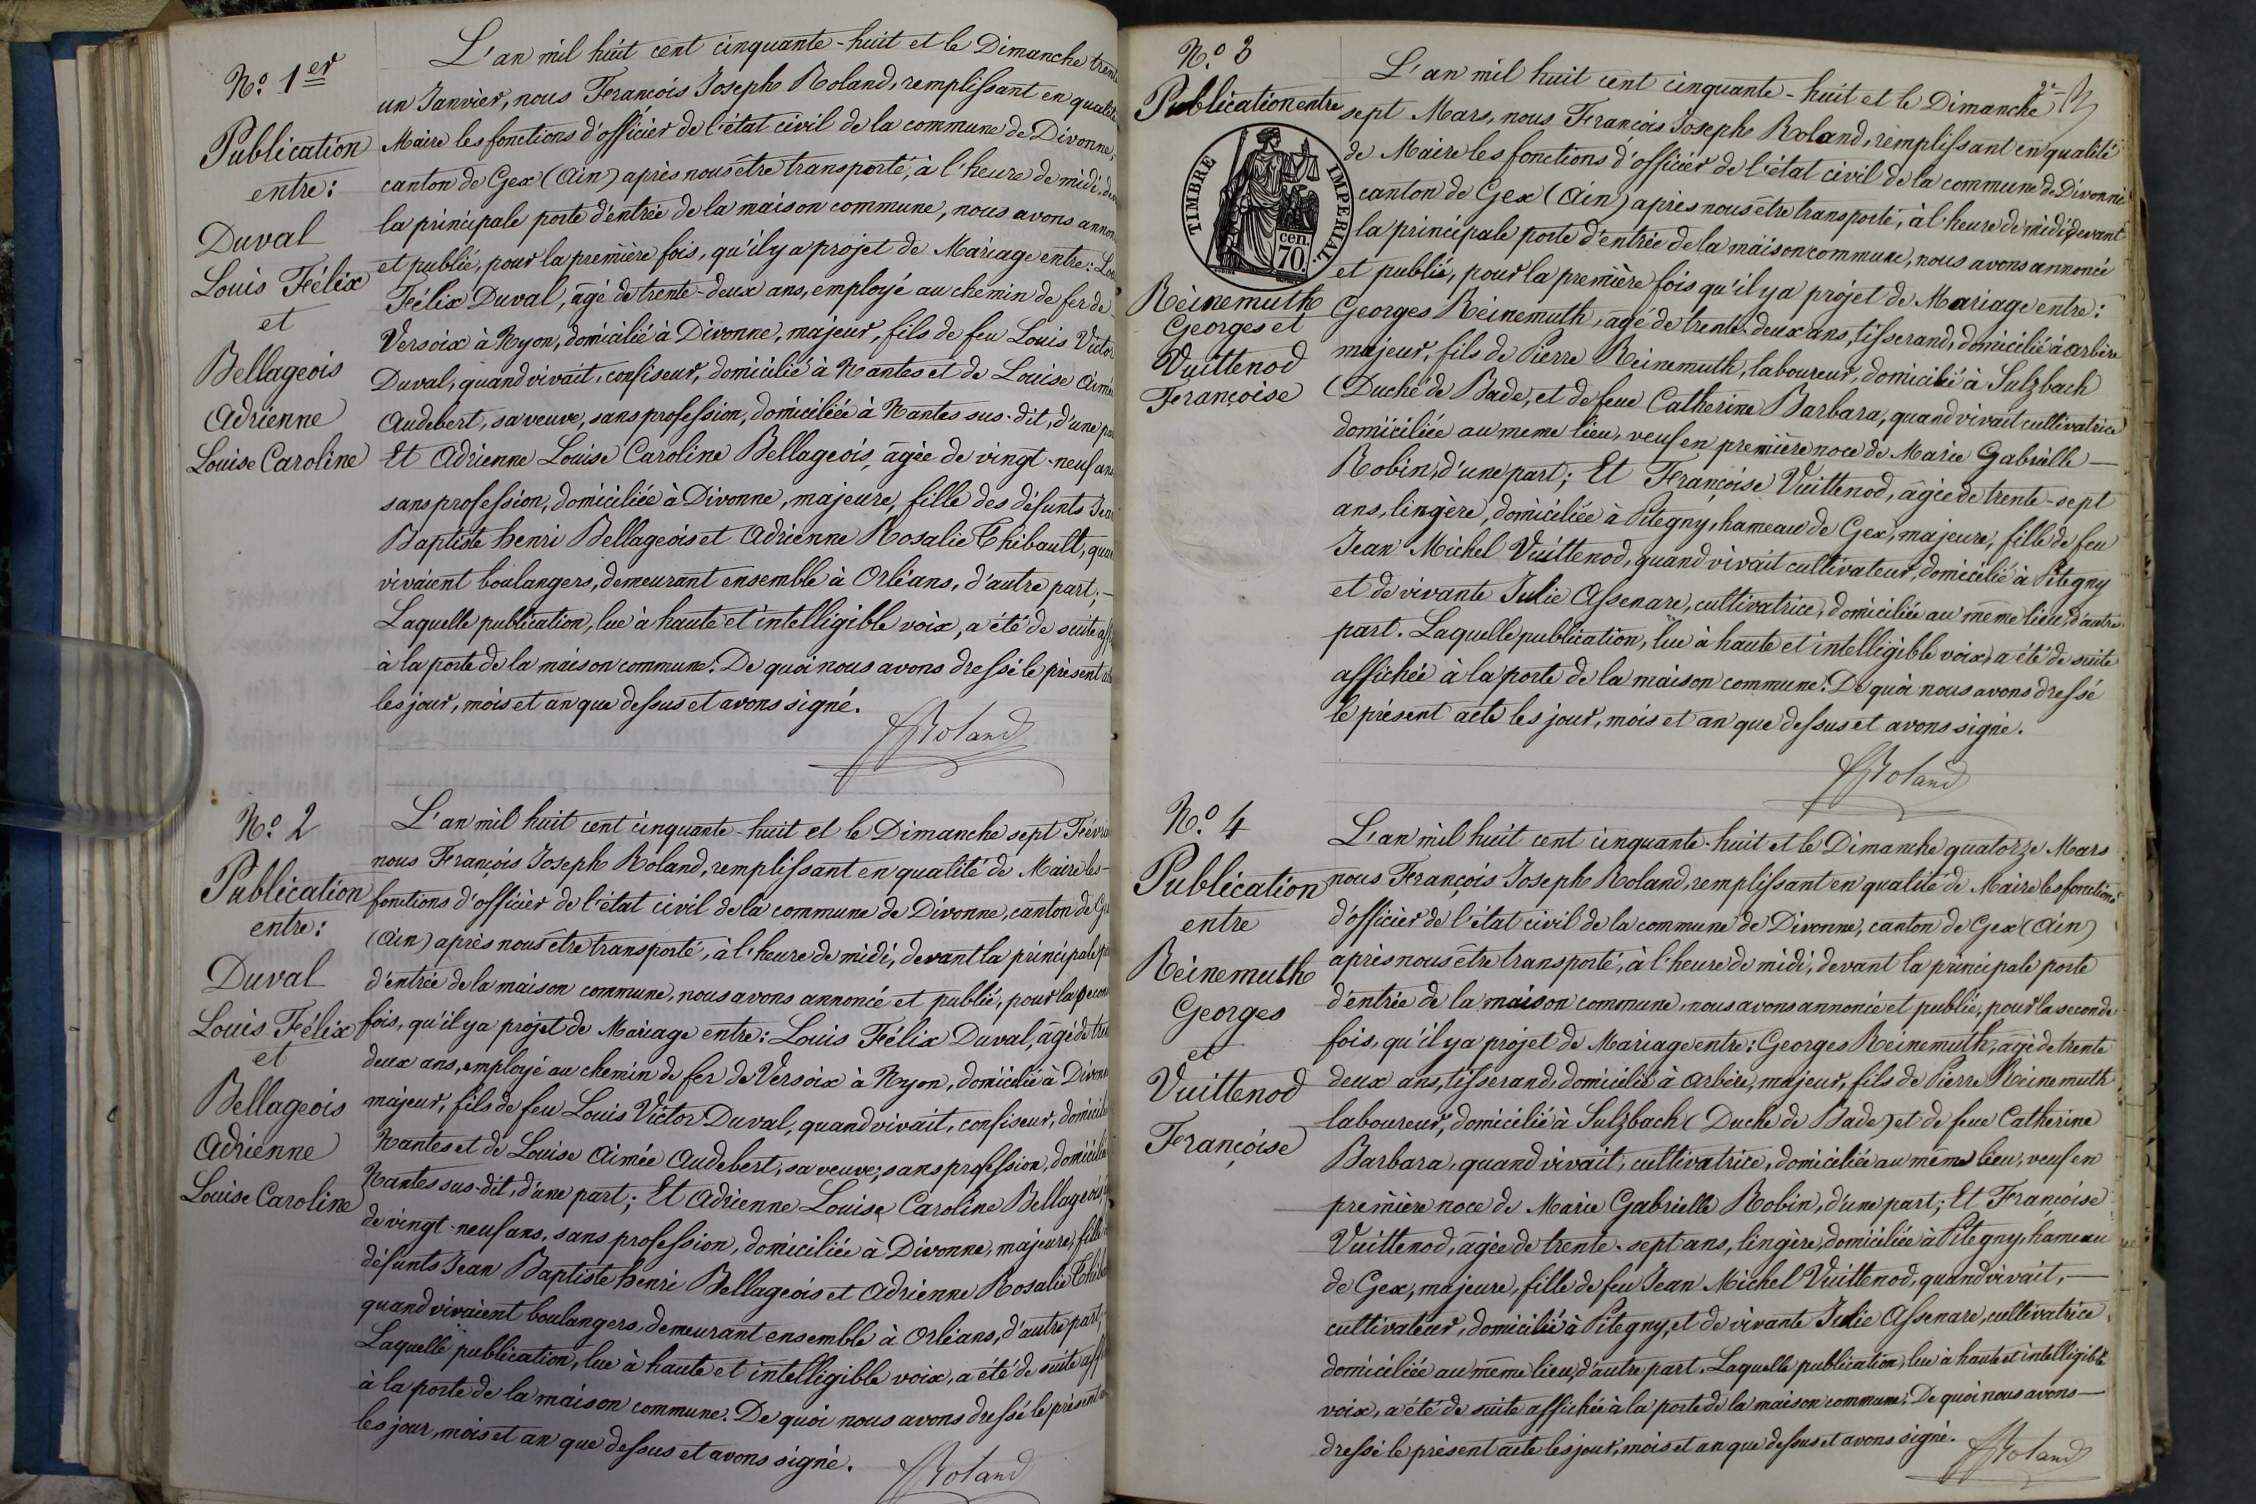 N.º 1er
Publication
entre:
Duval
Louis Félix
et
Bellageois
Adrienne
Louise Caroline
L'an mil huit cent cinquante-huit et le Dimanche trente
un Janvier, nous François Joseph Roland, remplissant en qualité
Maire les fonctions d'officier de l'état civil de la commune de Divonne,
canton de Gex (Ain) après nous être transporté, à l'heure de midi,
la principale porte d'entrée de la maison commune, nous avons
et publié, pour la première fois, qu'il y a projet de Mariage entre:
Félix Duval, âgé de trente-deux ans, employé au chemin de fer de
Versoix à Nyon, domicilié à Divonne, majeur, fils de feu Louis Victor
Duval, quand vivait, confiseur, domicilié à Nantes et de Louise Aimée
Audebert, sa veuve, sans profession, domiciliée à Nantes sus-dit, d'une
Et Adrienne Louise Caroline Bellageois, âgée de vingt-neuf ans
sans profession, domiciliée à Divonne, majeure, fille des défunts Jean
Baptiste henri Bellageois et Adrienne Rosalie Thibault,
vivaient boulangers, demeurant ensemble à Orléans, d'autre part;—
Laquelle publication, lue à haute et intelligible voix, a été de suite
à la porte de la maison commune. De quoi nous avons dressé le présent
les jour, mois et an que dessus et avons signé.
Roland
N.º 2
Publication
entre:
Duval
Louis Félix
et
Bellageois
Adrienne
Louise Caroline
L'an mil huit cent cinquante-huit et le Dimanche sept
nous François Joseph Roland, remplissant en qualité de Maire les-
fonctions d'officier de l'état civil de la commune de Divonne, canton de
(Ain) après nous être transporté, à l'heure de midi, devant la principale
d'entrée de la maison commune, nous avons annoncé et publié, pour la
fois, qu'il y a projet de Mariage entre: Louis Félix Duval, âgé de
deux ans, employé au chemin de fer de Versoix à Nyon, domicilié à
majeur, fils de feu Louis Victor Duval, quand vivait, confiseur,
Nantes et de Louise Aimée Audebert, sa veuve; sans profession,
Nantes sus-dit, d'une part; Et Adrienne Louise Caroline Bellageois,
de vingt-neuf ans, sans profession, domiciliée à Divonne, majeure,
défunts Jean Baptiste henri Bellageois et Adrienne Rosalie
quand vivaient boulangers, demeurant ensemble à Orléans, d'autre part;
Laquelle publication, lue à haute et intelligible voix, a été de suite
à la porte de la maison commune. De quoi nous avons dressé le présent
les jour, mois et an que dessus et avons signé.
Roland
N.º 3
Publication entre
TIMBRE IMPERIAL.
cen.
70.
Reinemuth
Georges et
Vuittenod
Françoise
L'an mil huit cent cinquante-huit et le Dimanche
sept Mars, nous François Joseph Roland, remplissant en qualité
de Maire les fonctions d'officier de l'état civil de la commune de Divonne
canton de Gex (Ain) après nous être transporté, à l'heure de midi, devant
la principale porte d'entrée de la maison commune, nous avons annoncé
et publié, pour la première fois qu'il y a projet de Mariage entre:
Georges Reinemuth, âgé de trente-deux ans, tisserand, domicilié à arbère
majeur, fils de Pierre Reinemuth, laboureur, domicilié à Sulzbach
(Duché de Bade, et de feue Catherine Barbara, quand vivait cultivatrice
domiciliée au meme lieu, veuf en première noce de Marie Gabrielle—
Robin, d'une part; Et Françoise Vuittenod, âgée de trente-sept
ans, lingère, domiciliée à Pitegny, hameau de Gex, majeure, fille de feu
Jean Michel Vuittenod, quand vivait cultivateur, domicilié à Pitegny
et de vivante Julie Assenare, cultivatrice, domiciliée au même lieu, d'autre
part. Laquelle publication, lue à haute et intelligible voix, a été de suite
affichée à la porte de la maison commune. De quoi nous avons dressé
le présent acte les jour, mois et an que dessus et avons signé.
Roland
N.º 4
Publication
entre
Reinemuth
Georges
et
Vuittenod
Françoise
L'an mil huit cent cinquante-huit et le Dimanche quatorze Mars
nous François Joseph Roland, remplissant en qualité de Maire les fonctions
d'officier de l'état civil de la commune de Divonne, canton de Gex (Ain)
après nous être transporté, à l'heure de midi, devant la principale porte
d'entrée de la maison commune, nous avons annoncé et publié, pour la seconde
fois, qu'il y a projet de Mariage entre: Georges Reinemuth, âgé de trente
deux ans, tisserand, domicilié à arbère, majeur, fils de Pierre Reinemuth
laboureur, domicilié à Sulzbach (Duché de Bade) et de feue Catherine
Barbara, quand vivait, cultivatrice, domiciliée au même lieu, veuf en
première noce de Marie Gabrielle Robin, d'une part; Et Françoise
Vuittenod, âgée de trente-sept ans, lingère, domiciliée à Pitegny, hameau
de Gex, majeure, fille de feu Jean Michel Vuittenod, quand vivait,—
cultivateur, domicilié à Pitegny, et de vivante Julie Assenare, cultivatrice
domiciliée au même lieu, d'autre part. Laquelle publication, lue à haute et intelligible
voix, a été de suite affichée à la porte de la maison commune. De quoi nous avons—
dressé le présent acte les jour, mois et an que dessus et avons signé.
Roland